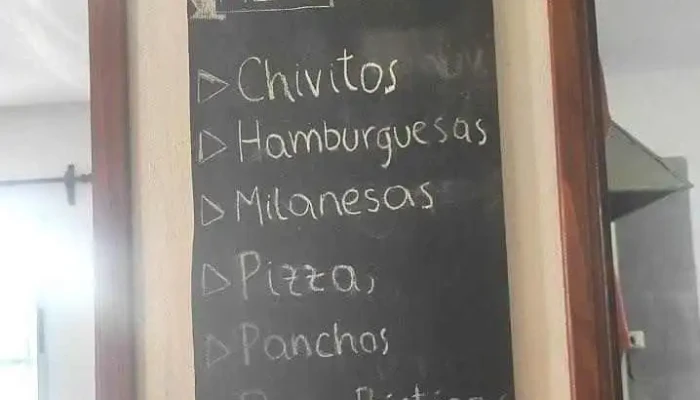 Chivitos
Hamburguesas
Milanesas
Pizzas
Panchos